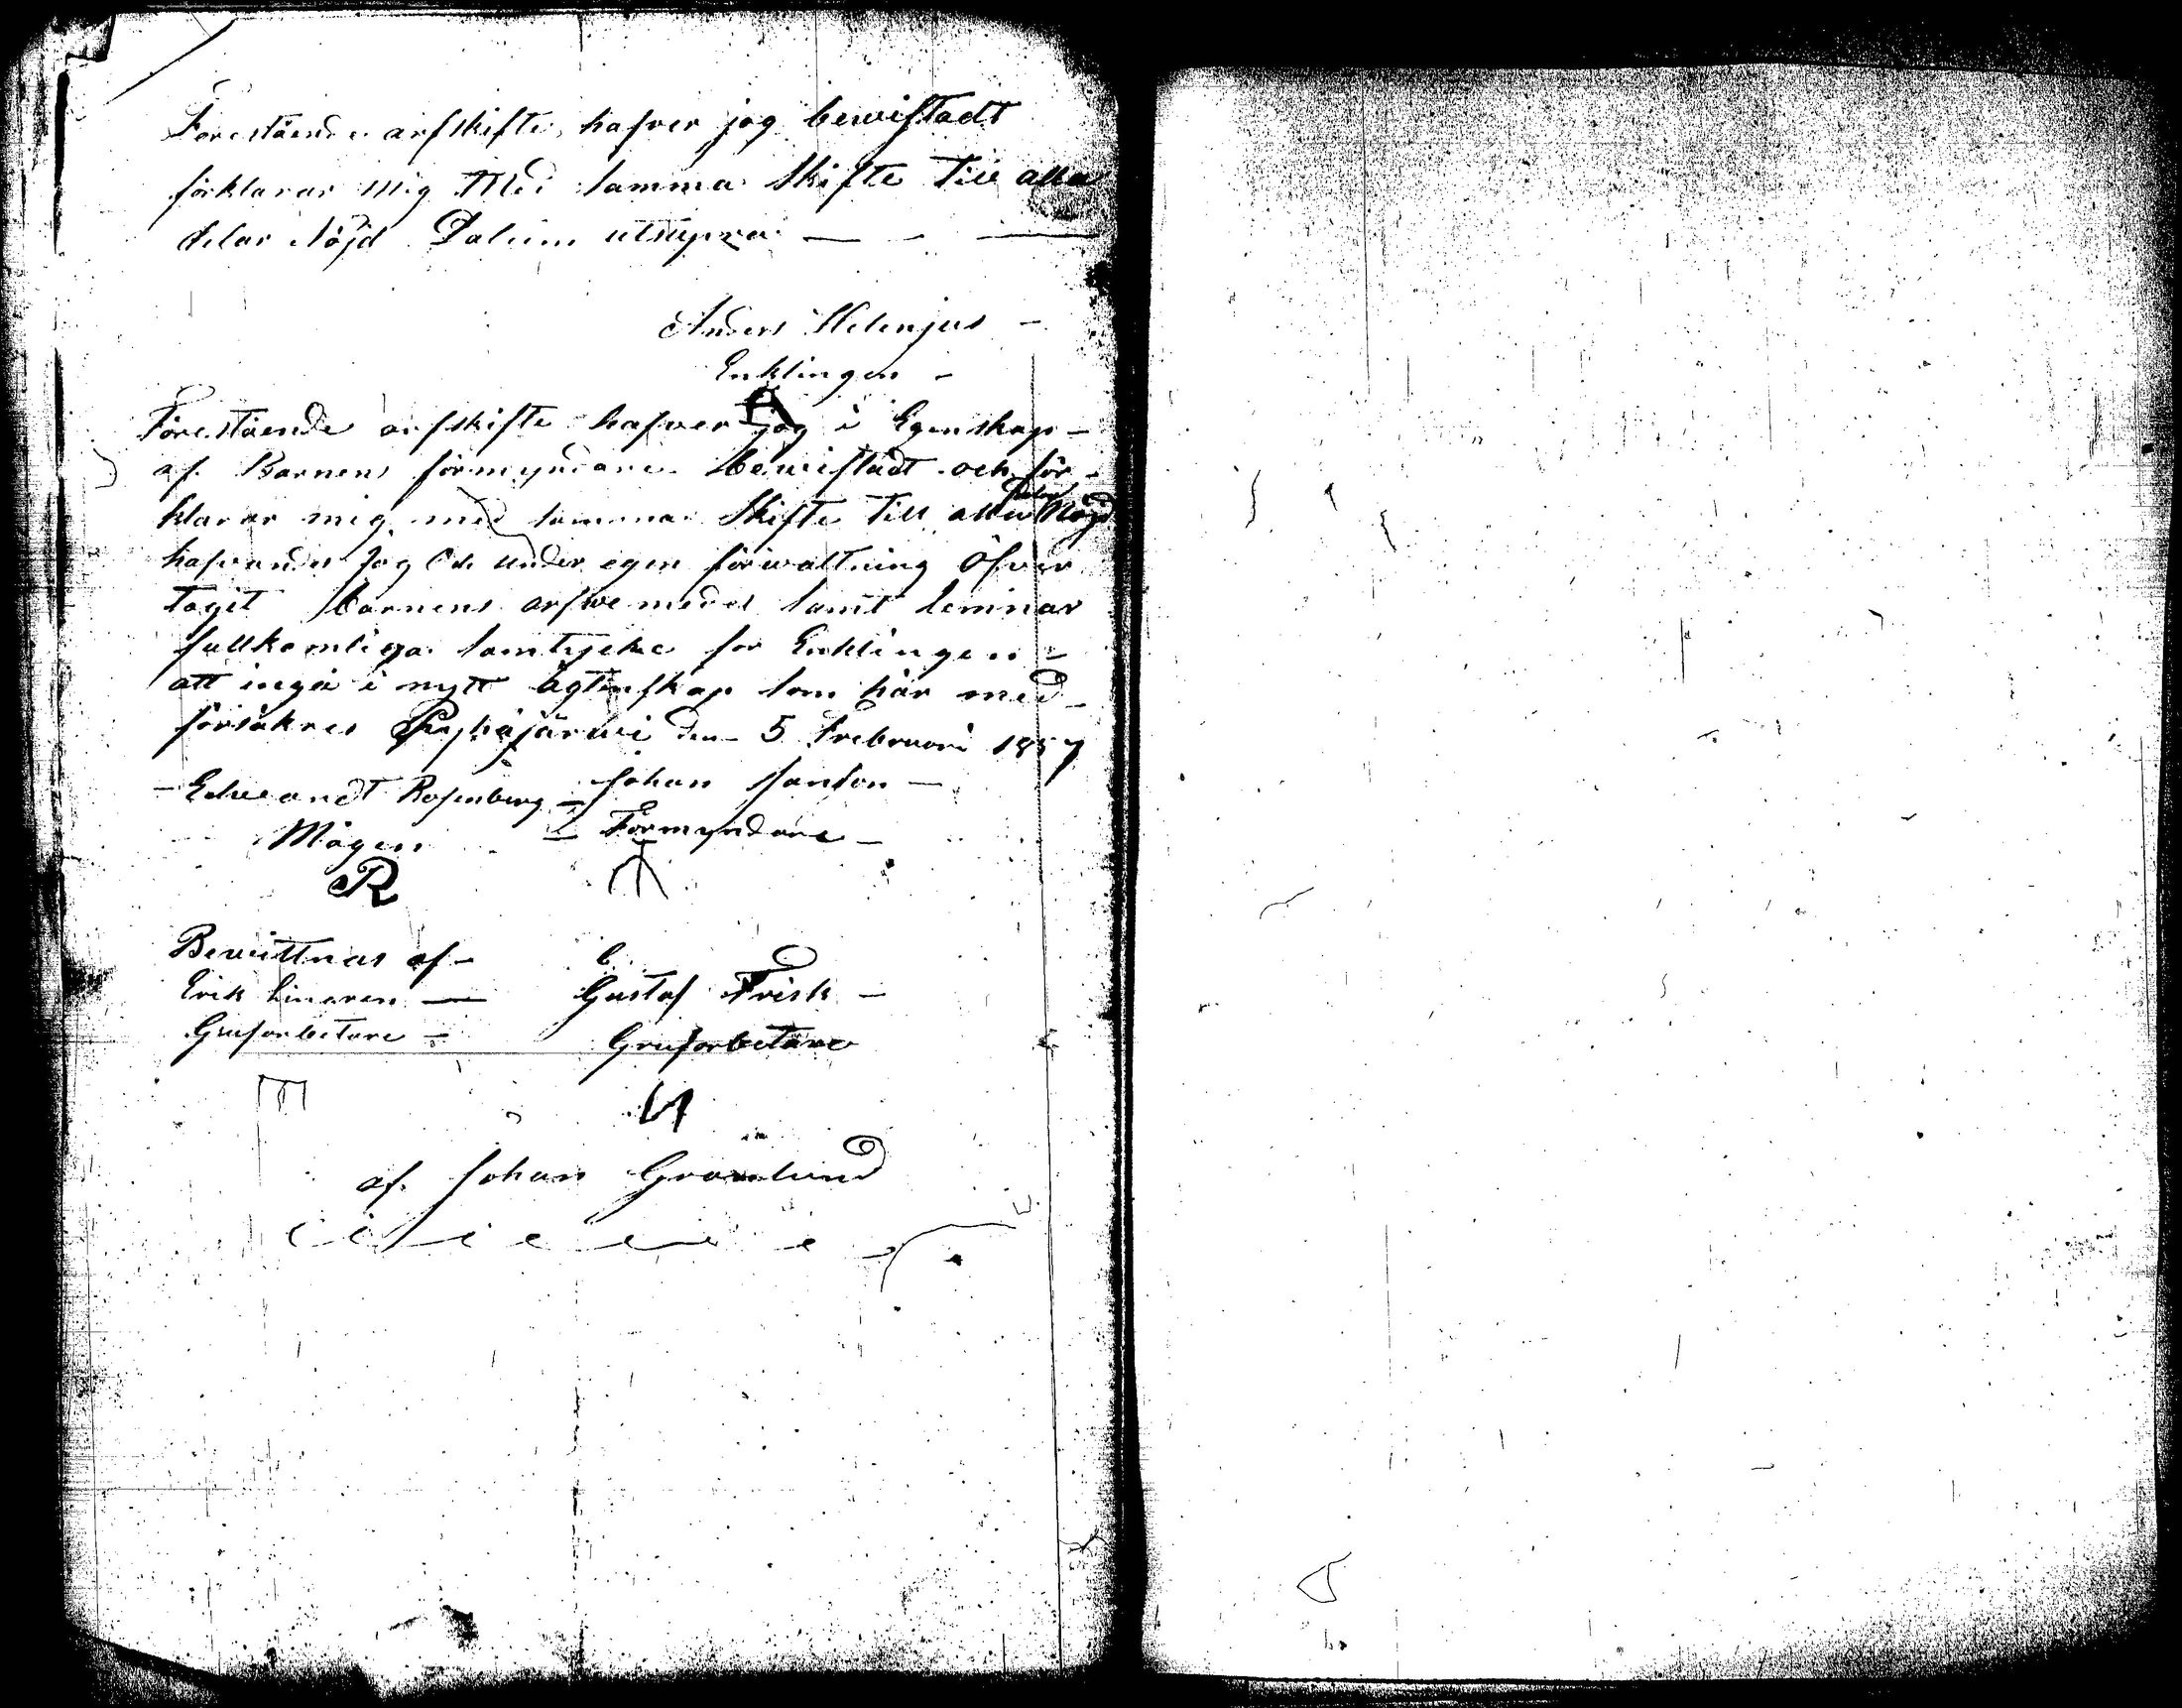 Förestående arfskifte hafver jag bewistadt
förklarar mig Med samma Skifte Till alla
delar Nöjd Datum utsupra
Anders Helenjus
Enklingen
A
Förestående arfskifte hafver jag i Egenskap
af Barnens förmyndare bewistadt och för-
klarar mig med samma Skifte Till alla delar Nöjd
hafvandes Jag Och under egen förwaltning Öfver
Tagit barnens arfwe medel samt lemnar
fullkomliga samtycke för Enklingen
att ingå i nytt ägtenskap som här med
försäkres Pyhäjärwi den 5 Frebruari 1857
Edwandt Rosenberg Johan Janson
Mågen Förmyndare
R
Bewittnas af
Erik Gustaf Frisk
Grufarbetare Grufarbetare
af Johan Granlund